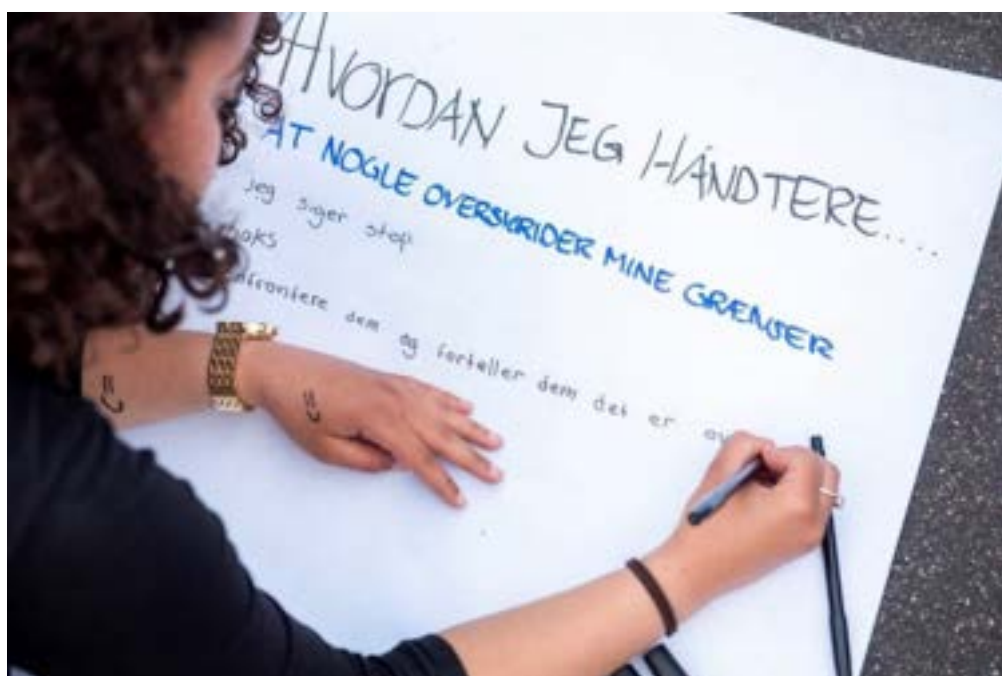 HVORDAN JEG HÅNDTERE....
AT NOGLE OVERSKRIDER MINE GRÆNSER
jeg siger stop
dem og fortæller dem det er